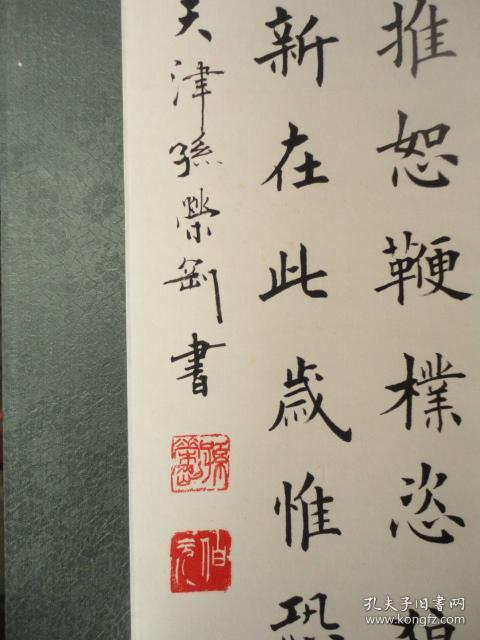 推恕鞭樸恣
新在此歲惟恐
天津孫榮剛書
孔夫子旧书网
kongfz.com